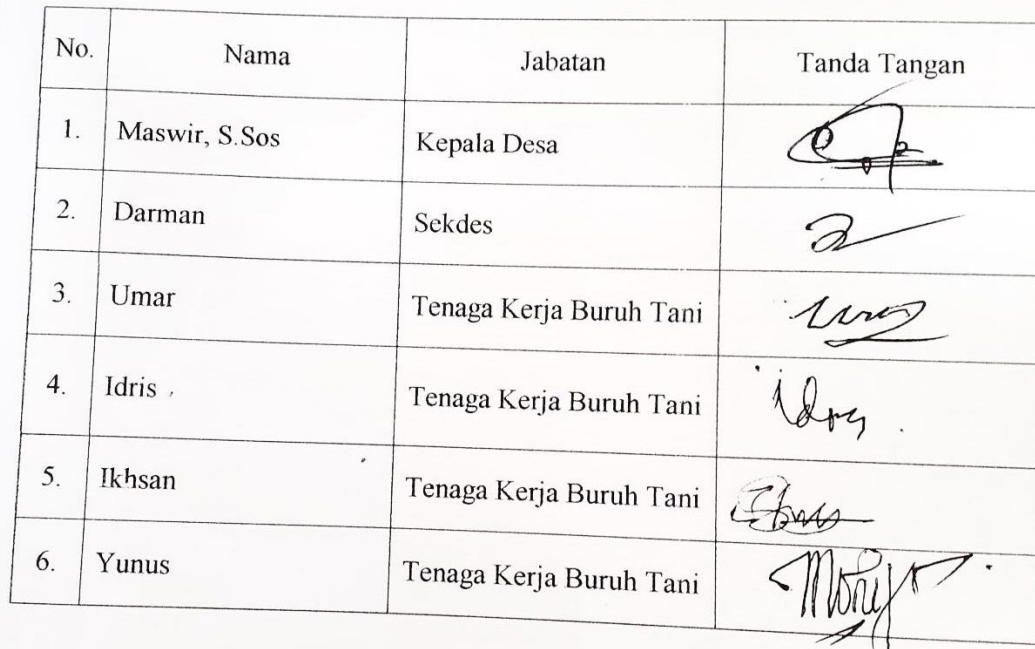 No. Nama Jabatan Tanda Tangan
1. Maswir, S.Sos Kepala Desa
2. Darman Sekdes
3. Umar Tenaga Kerja Buruh Tani
4. Idris Tenaga Kerja Buruh Tani
5. Ikhsan Tenaga Kerja Buruh Tani
6. Yunus Tenaga Kerja Buruh Tani